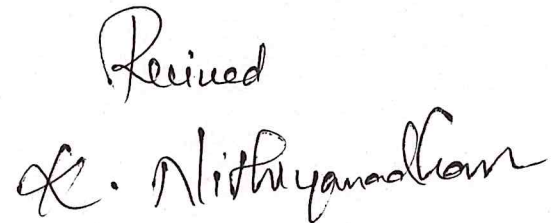 Recived
K. Nithiyanadham